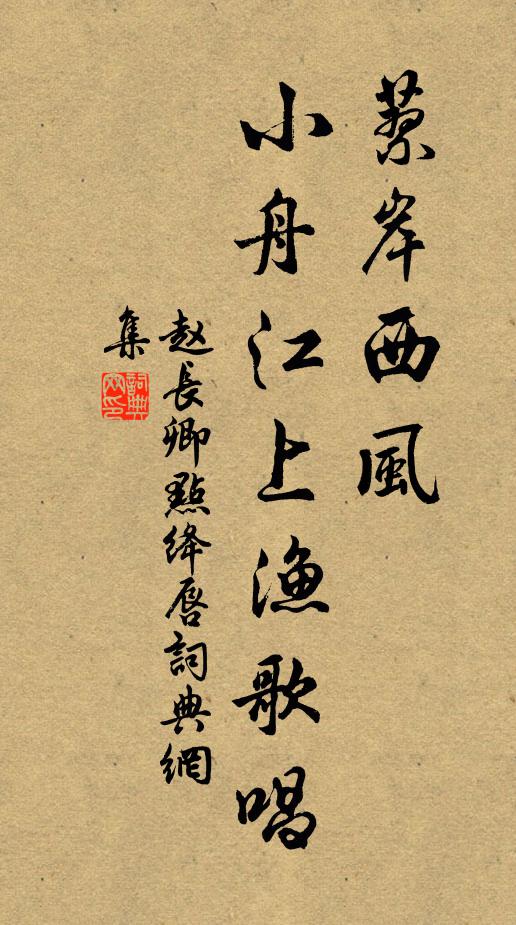 蓼岸西風
小舟江上漁歌唱
赵長卿點絳唇詞典網
集
詞典
网印